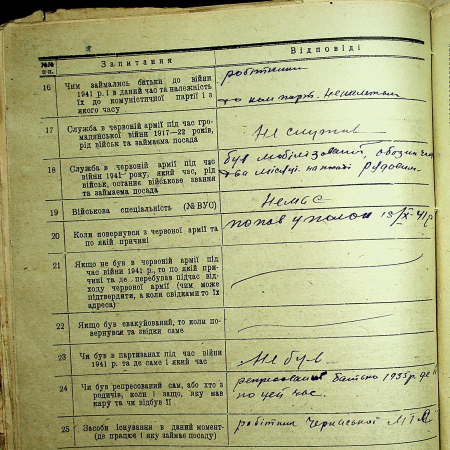 №№ п-п.
Запитання
Відповіді
16 Чим займались батьки до війни
1941 р. і в даний час та належність
їх до комуністичної партії і з
якого часу
робітники
до ком. парт. неналежали
17 Служба в червоній армії під час гро-
мадянської війни 1917—22 років,
рід військ та займаєма посада
Не служив
18 Служба в червоній армії під час
війни 1941- року, який час, рід
військ, останнє військове звання
та займаєма посада
був мобілізований,
два місяці на посаді рядовим
19 Військова спеціяльність (№ ВУС)
Немає
20 Коли повернувся з червоної армії та
по якій причині
попав у полон 13/IX-41 р
21 Якщо не був в червоній армії під
час війни 1941 р., то по якій при-
чині та де перебував підчас від-
ходу червоної армії (чим може
підтвердити, а коли свідками то їх
адреса)
22 Якщо був евакуйований, то коли по-
вернувся та звідки саме
23 Чи був в партизанах під час війни
1941 р. та де саме і який час
Не був
24 Чи був репресований сам, або хто з
родичів, коли і защо, яку мав
кару та чи відбув її
репресований батько 1935 р. де
по цей час.
25 Засоби існування в даний момент-
(де працює і яку займає посаду)
робітник МТС